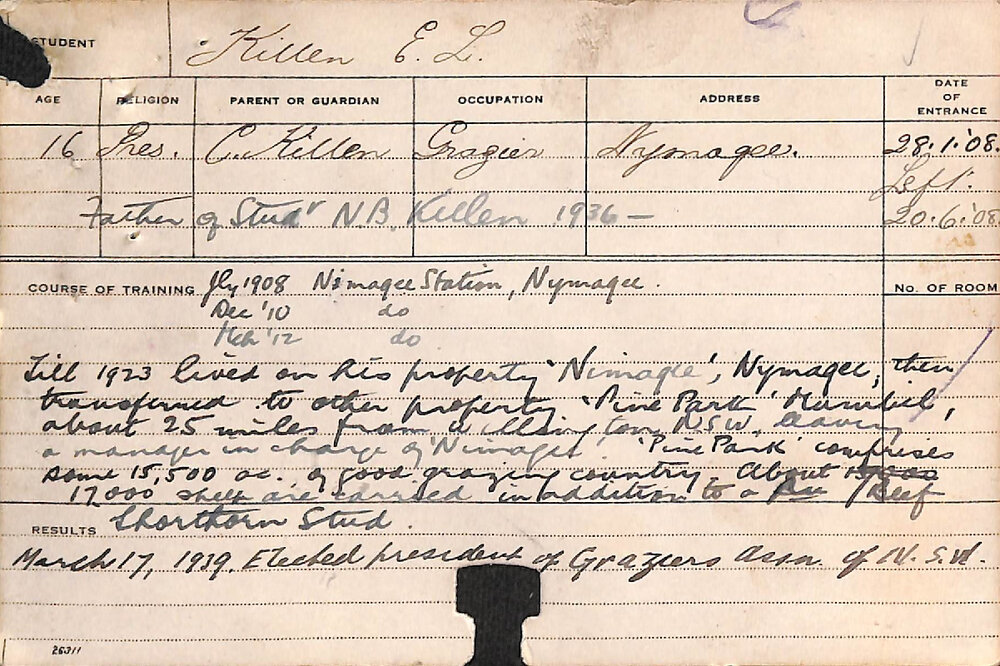 STUDENT Killen E. L.
AGE RELIGION PARENT OR GUARDIAN OCCUPATION ADDRESS DATE OF ENTRANCE
16 Pres. C. Killen Grazier Nymagee. 28.1.'08.
Left.
Father of Studt N.B. Killen 1936 — 20.6.'08
COURSE OF TRAINING Jly 1908 Nimagee Station, Nymagee. No. OF ROOM
Dec '10 do
Mch '12 do
Till 1923 lived on his property 'Nimagee', Nymagee, then
transferred to other property 'Pine Park' Mumbil,
about 25 miles from Wellington N.S.W. leaving
a manager in charge of 'Nimagee'. 'Pine Park' comprises
some 15,500 ac. of good grazing country. About
17,000 sheep are carried in addition to a Beef
RESULTS Shorthorn Stud.
March 17, 1939. Elected president of Graziers Assn. of N.S.W.
26311